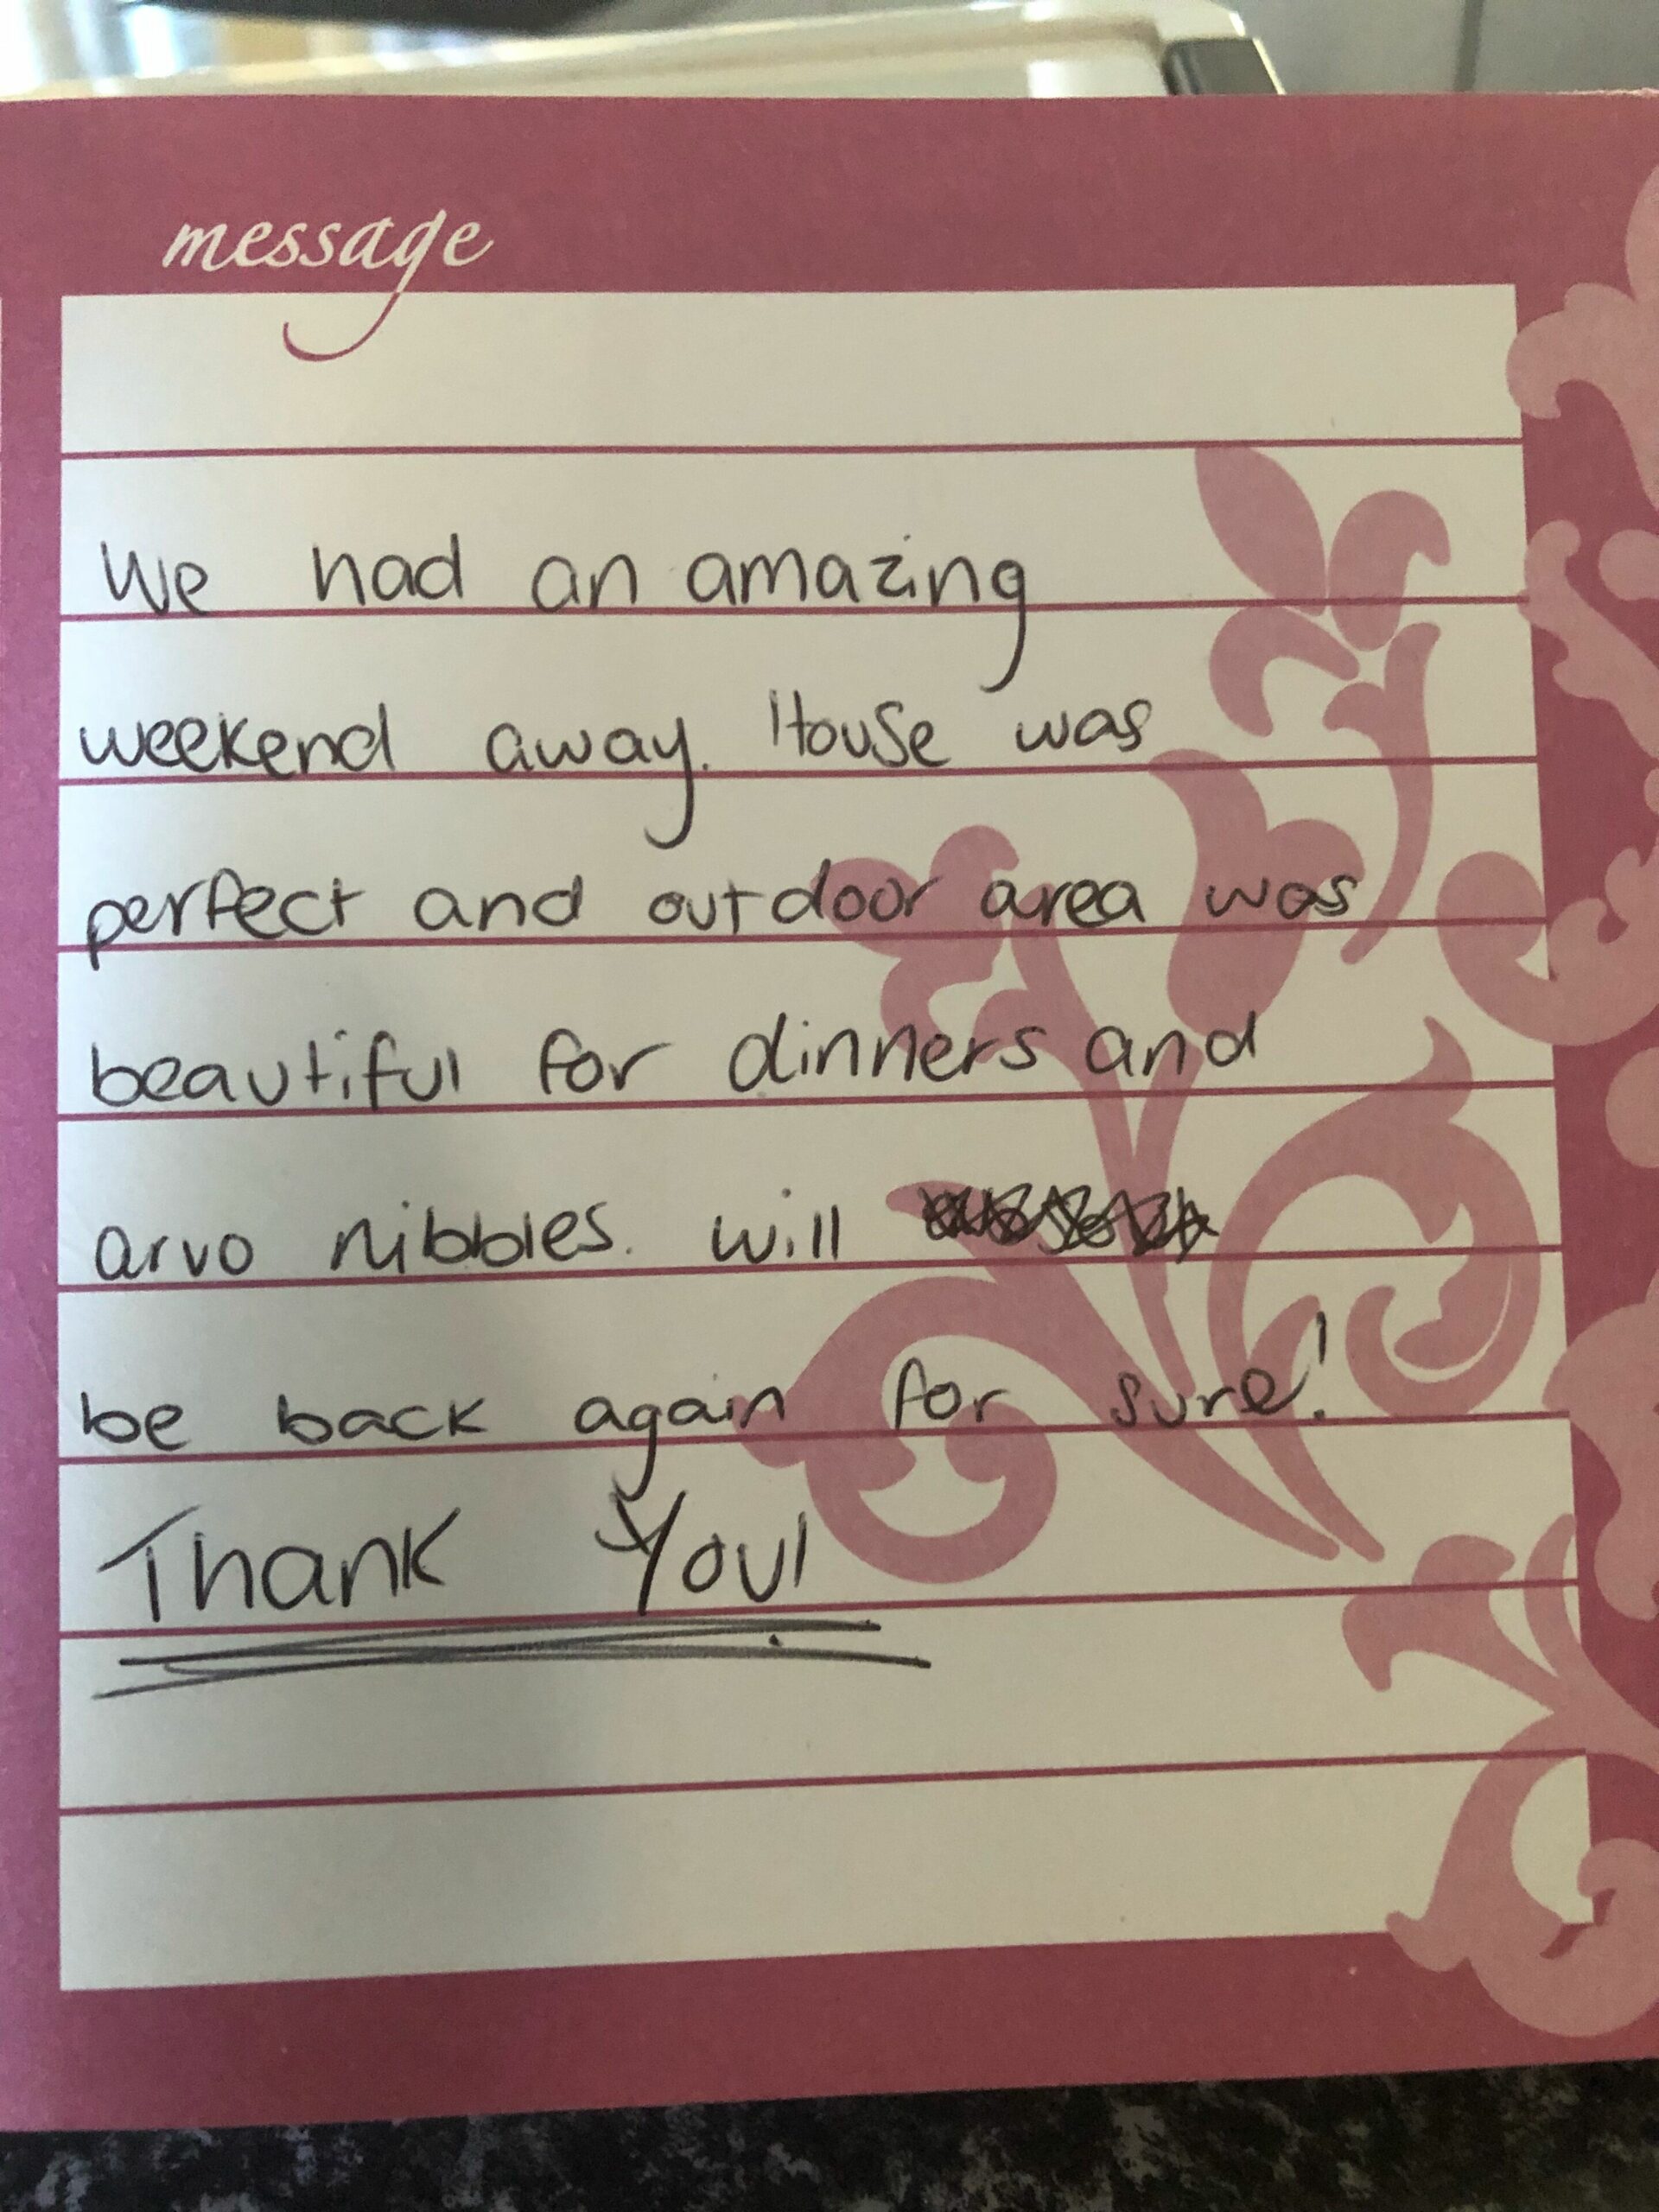 message
We had an amazing
weekend away. House was
perfect and outdoor area was
beautiful for dinners and
arvo nibbles. will
be back again for sure!
Thank You!